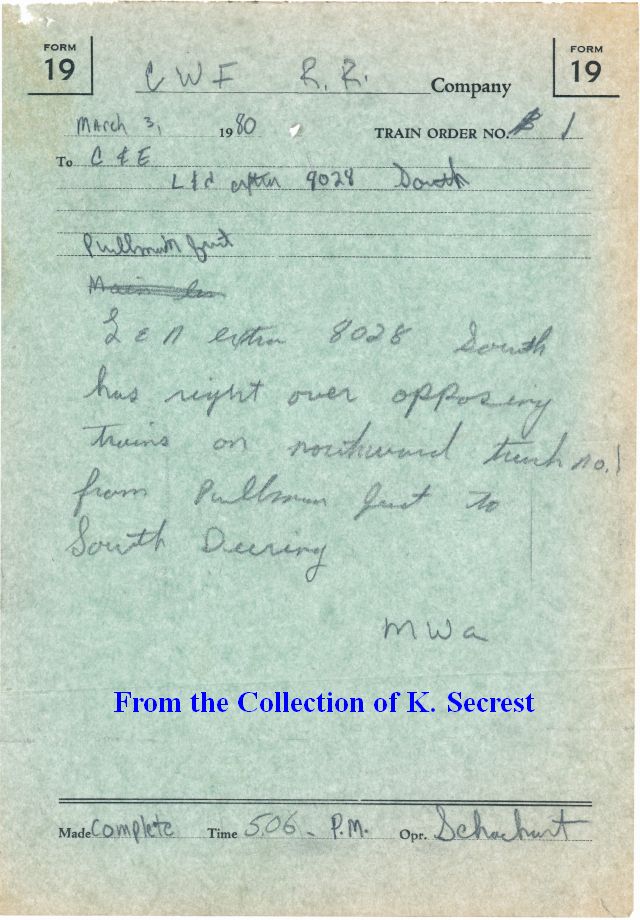 FORM 19
FORM 19
C W I R.R. Company
March 3, 1980 TRAIN ORDER NO. 1
To C & E
L & N extra 8028 South
Pullman Junt
L & N extra 8028 South
has right over opposing
trains on northward track no. 1
from Pullman Junt to
South Deering
MWA
From the Collection of K. Secrest
Made Complete Time 5:06 P.M. Opr.